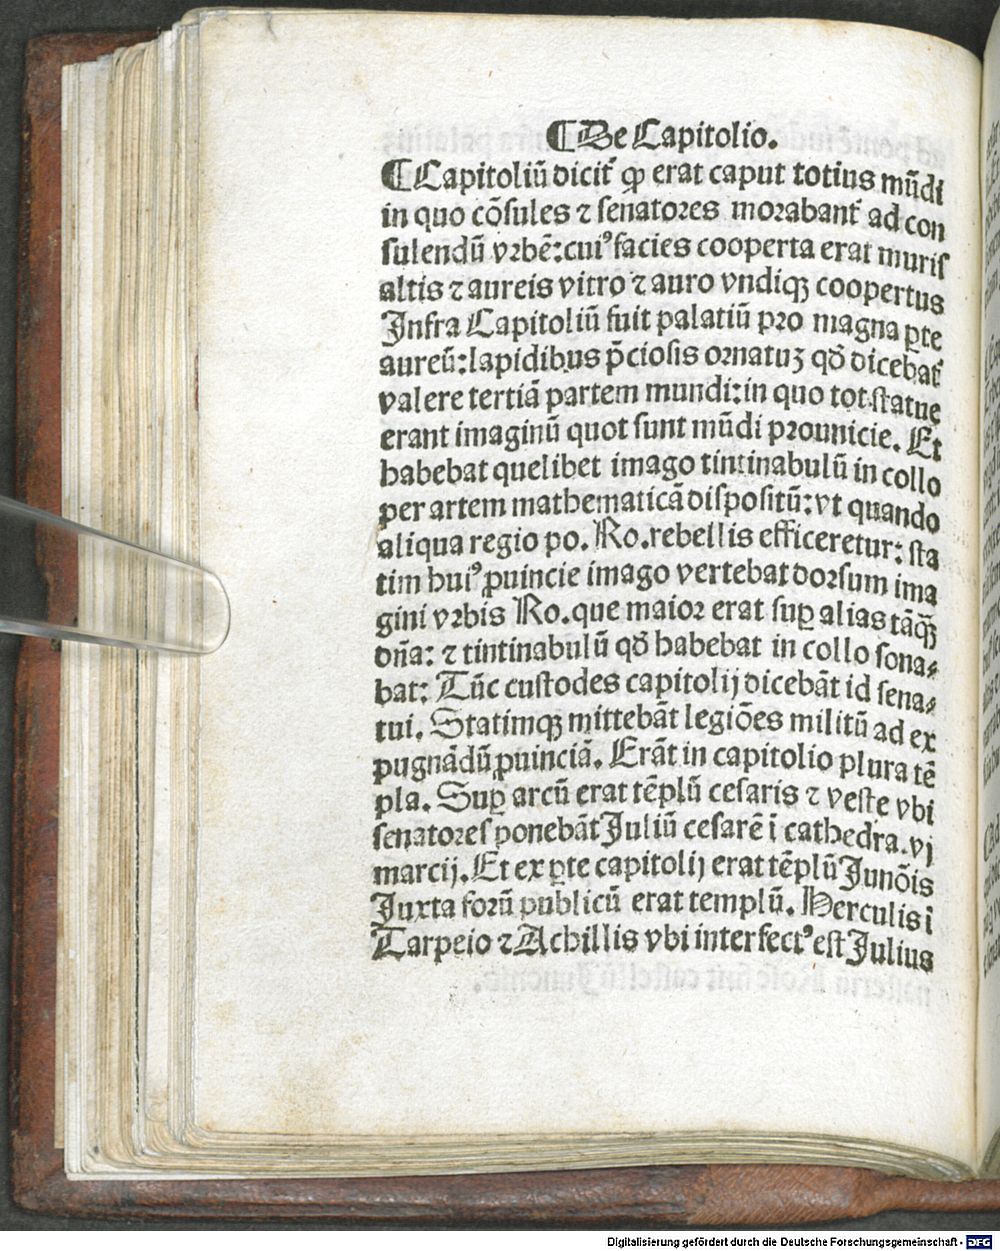 ¶ De Capitolio.
¶ Capitoliū dicit᷑ ꝙ erat caput totius mūdi
in quo cōsules ⁊ senatores morabant᷑ ad con
sulendū vrbē: cuiꝰ facies cooperta erat muris
altis ⁊ aureis vitro ⁊ auro vndiqꝫ coopertus
Infra Capitoliū fuit palatiū pro magna ꝑte
aureū: lapidibus p̄ciosis ornatuꝫ qd̄ dicebat᷑
valere tertiā partem mundi: in quo tot statue
erant imaginū quot sunt mūdi prouincie. Et
habebat quelibet imago tintinabulū in collo
per artem mathematicā dispositū: vt quando
aliqua regio po. Ro. rebellis efficeretur: sta
tim huiꝰ ꝓuincie imago vertebat dorsum ima
gini vrbis Ro. que maior erat suꝑ alias tāqꝫ
dn̄a: ⁊ tintinabulū qd̄ habebat in collo sona⸗
bat: Tūc custodes capitolij dicebāt id sena⸗
tui. Statimqꝫ mittebāt legiōes militū ad ex
pugnādū ꝓuinciā. Erāt in capitolio plura tē
pla. Suꝑ arcū erat tēplū cesaris ⁊ veste vbi
senatores ponebāt Juliū cesarē ī cathedra. vj
marcij. Et ex ꝑte capitolij erat tēplū Junōis
Juxta forū publicū erat templū. Herculis ī
Tarpeio ⁊ Achillis vbi interfectꝰ est Julius
Digitalisierung gefördert durch die Deutsche Forschungsgemeinschaft - DFG